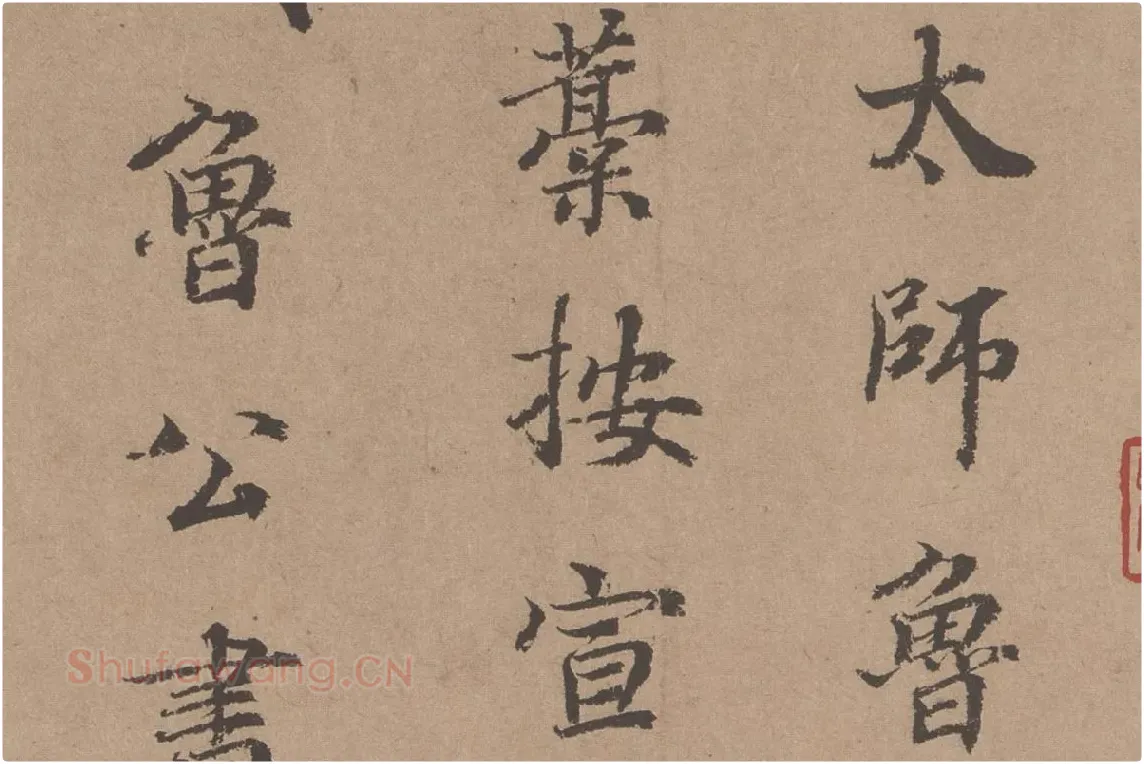 太師魯
藁按宣
魯公書
Shufawang.CN